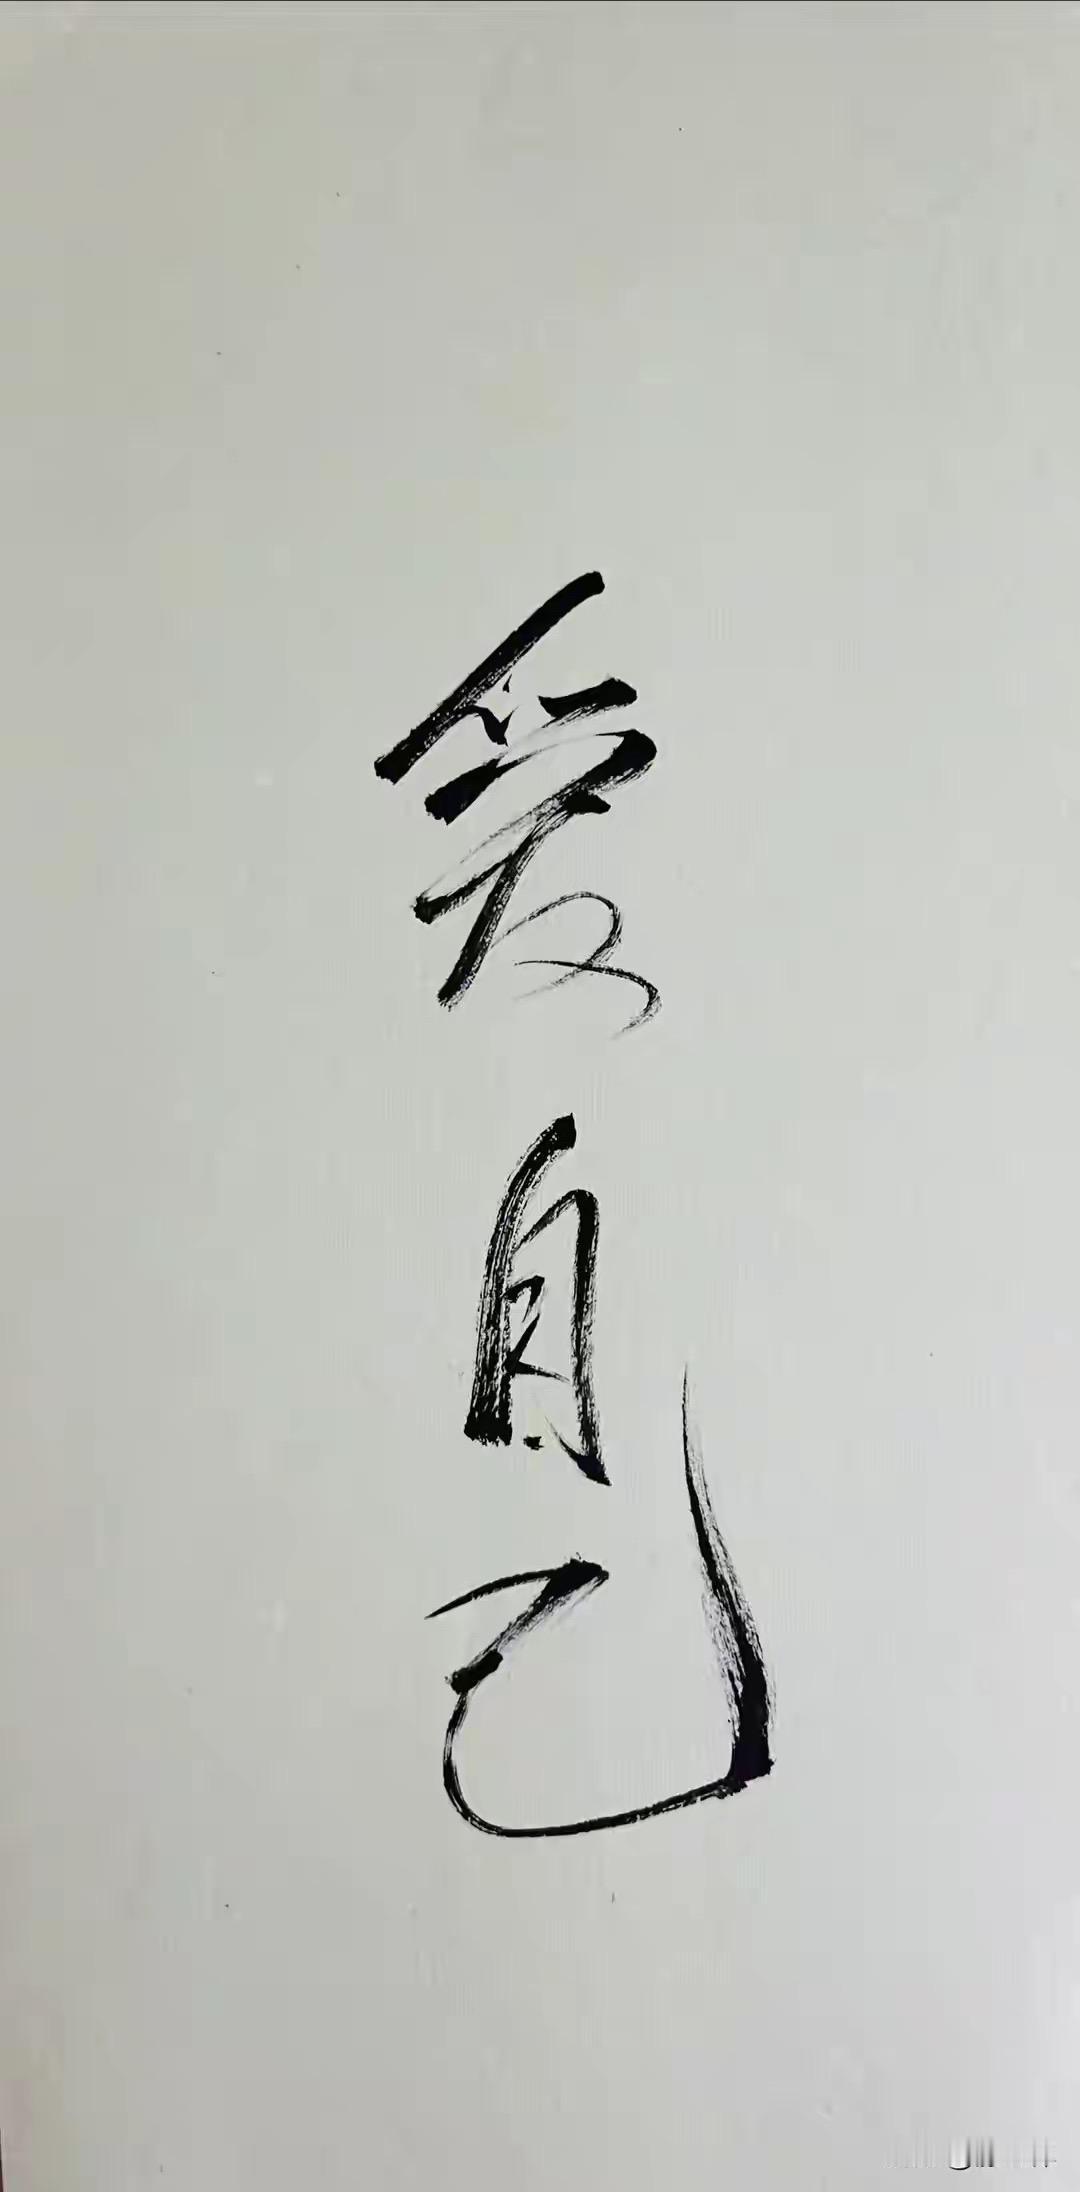 爱自己